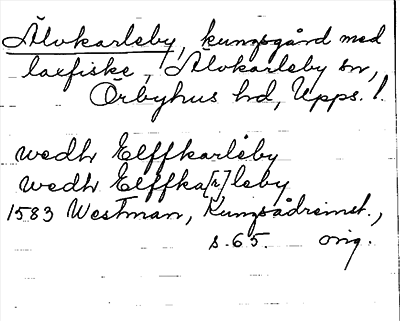 Älvkarleby, kungsgård med
laxfiske, Älvkarleby sn,
Örbyhus hd, Upps. l.
wedh Elffkarlëby
wedh Elffka[r]leby
1583 Westman, Kungsådreinst.,
s. 65. orig.